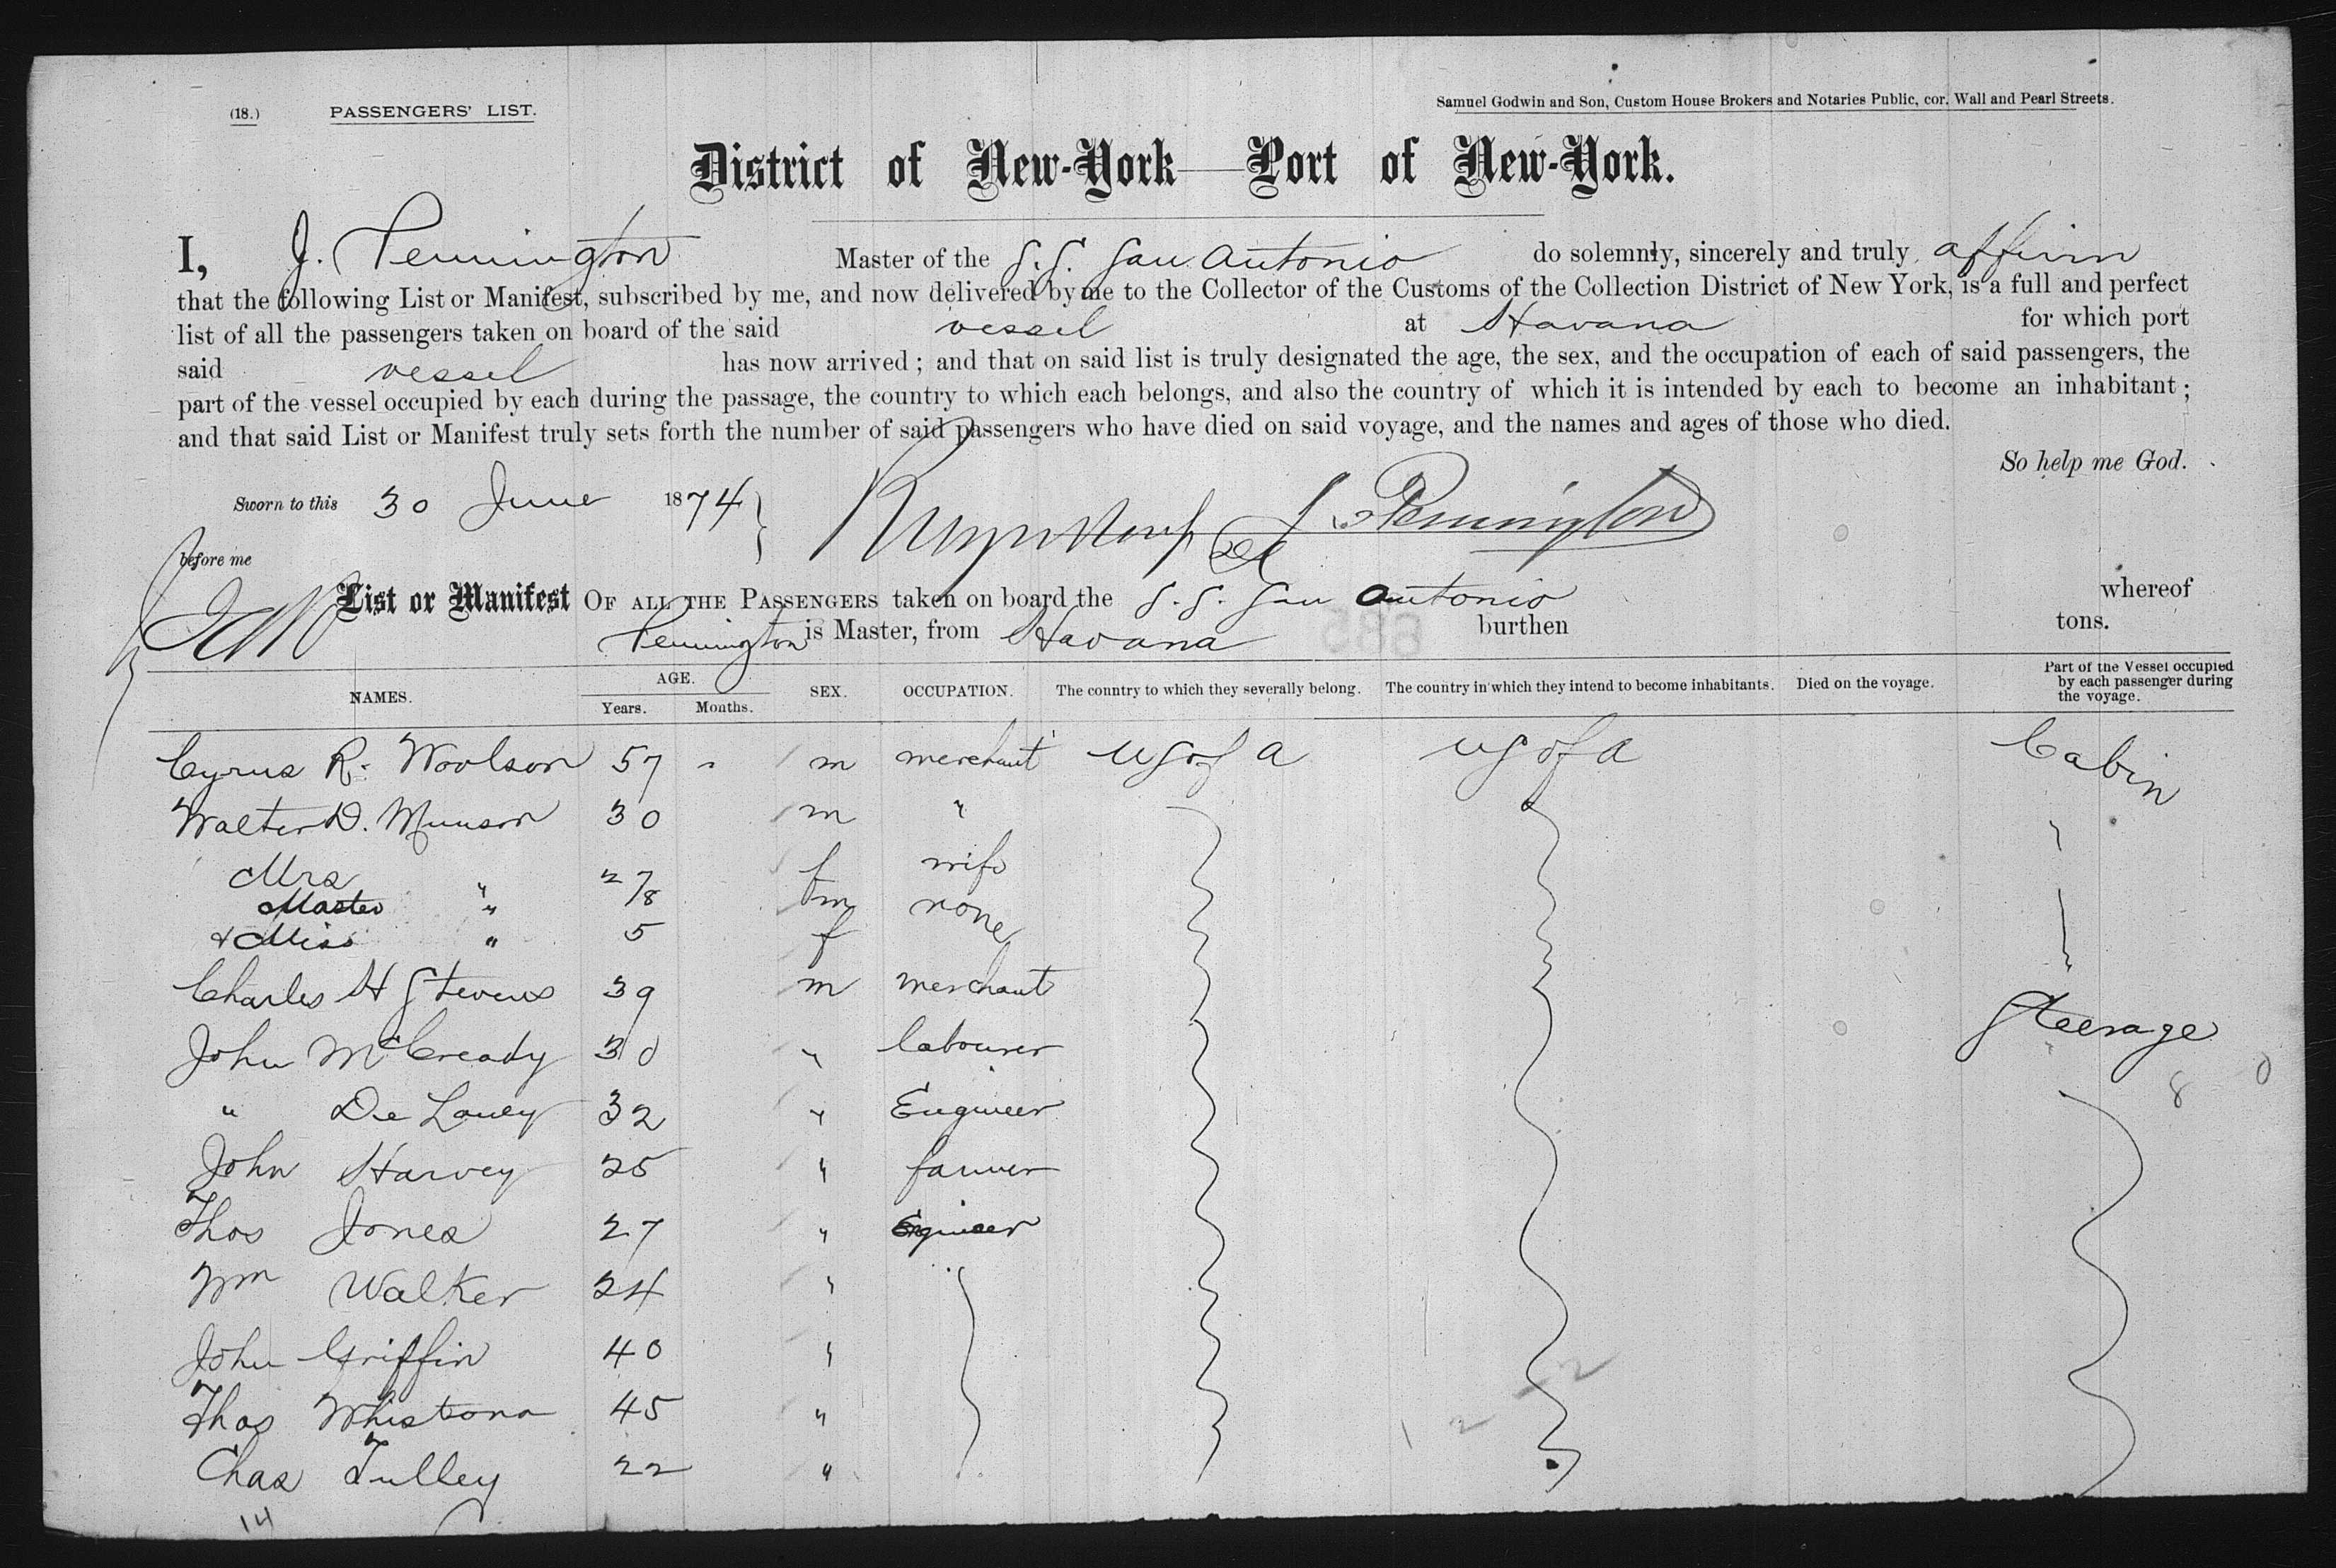 (18.) PASSENGERS' LIST. Samuel Godwin and Son, Custom House Brokers and Notaries Public, cor. Wall and Pearl Streets.
District of New-York—Port of New-York.
I, J. Pennington Master of the S.S. San Antonio do solemnly, sincerely and truly affirm
that the following List or Manifest, subscribed by me, and now delivered by me to the Collector of the Customs of the Collection District of New York, is a full and perfect
list of all the passengers taken on board of the said vessel at Havana for which port
said vessel has now arrived; and that on said list is truly designated the age, the sex, and the occupation of each of said passengers, the
part of the vessel occupied by each during the passage, the country to which each belongs, and also the country of which it is intended by each to become an inhabitant;
and that said List or Manifest truly sets forth the number of said passengers who have died on said voyage, and the names and ages of those who died.
So help me God.
Sworn to this 30 June 1874 } J. Pennington
before me
List or Manifest OF ALL THE PASSENGERS taken on board the S.S. San Antonio whereof
Pennington is Master, from Havana burthen tons.
NAMES. AGE. Years. Months. SEX. OCCUPATION. The country to which they severally belong. The country in which they intend to become inhabitants. Died on the voyage. Part of the Vessel occupied by each passenger during the voyage.
Cyrus R. Woolson 57 " m merchant US of A US of A Cabin
Walter D. Munson 30 m " "
Mrs " 27 f wife
Master " 8 m none
& Miss " 5 f
Charles H Stevens 39 m merchant
John McCready 30 " labourer Steerage
" De Laney 32 " Engineer 8 0
John Harvey 25 " farmer
Thos Jones 27 " Engineer
Wm Walker 24 "
John Griffin 40 "
Thos 45 "
Chas Tulley 22 "
14